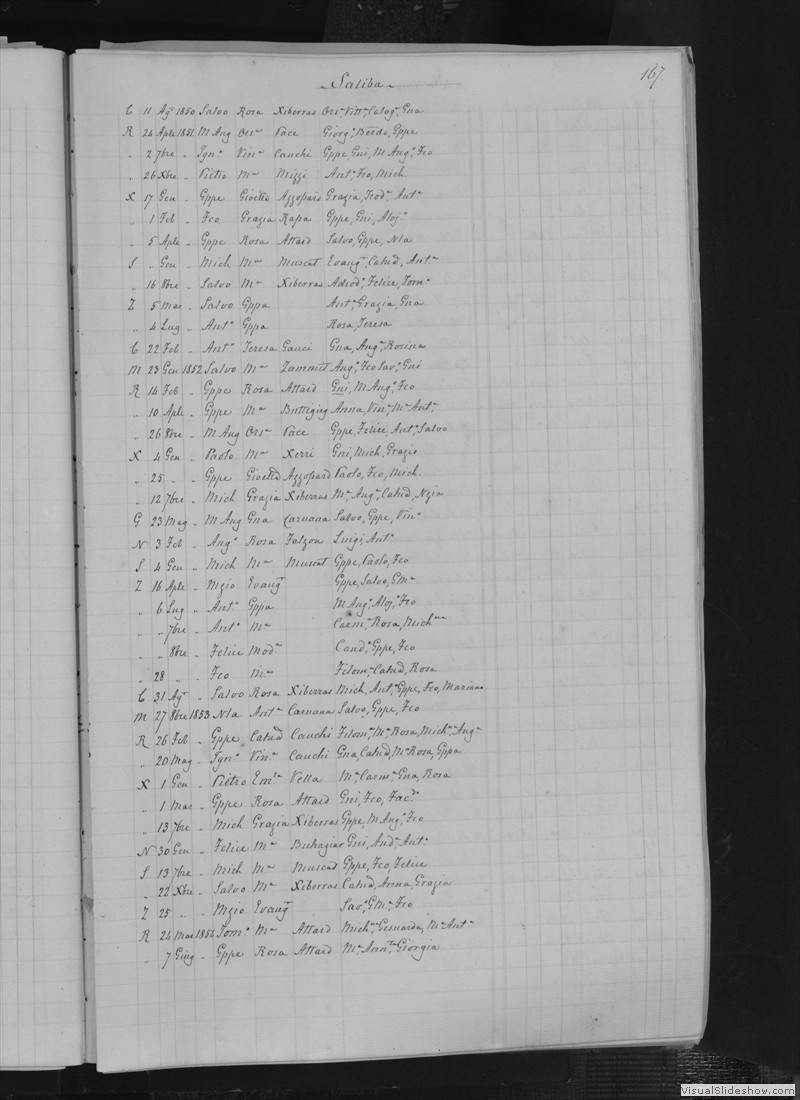 167.
Saliba
C 11 Agto 1850 Salvo Rosa Xiberras Orsa Vittа Calogo, Gna
R 24 Aple 1851 M Ang Orsa Pace Giorgo, Berdo, Gppe
„ 2 7bre „ Igno Vina Cauchi Gppe, Gni, M Ango, Fco
„ 26 Xbre „ Pietro Ma Mizzi Anto, Fco, Mich
X 17 Gen „ Gppe Azzopais Grazia, Anta
„ 1 Feb „ Fco Grazia Rapa Gppe, Gni, Alojo
„ 5 Aple „ Gppe Rosa Attard Salvo, Gppe, Nla
S „ Gen „ Mich Ma Muscat Evango, Catrd, Anta
„ 16 8bre „ Salvo Ma Xiberras Felice, Toma
Z 5 Mar „ Salvo Gppa Anto, Grazia, Gna
„ 4 Lug „ Anto Gppa Rosa, Teresa
C 22 Feb „ Anto Teresa Gauci Gna, Ango, Rosina
M 23 Gen 1852 Salvo Ma Zammit Ango, Fco Savo, Gni
R 14 Feb „ Gppe Rosa Attard Gni, M Ango, Fco
„ 10 Aple „ Gppe Ma Buttigieg Anna, Vina, Ma Anta
„ 26 8bre „ M Ang Orsa Pace Gppe, Felice, Anto, Salvo
X 4 Gen „ Paolo Ma Xerri Gni, Mich, Grazio
„ 25 „ „ Gppe Azzopard Paolo, Fco, Mich
„ 12 7bre „ Mich Grazia Xiberras Ma Anga, Catrd, Nzia
G 23 Mag „ M Ang Gna Caruana Salvo, Gppe, Vino
N 3 Feb „ Ango Rosa Falzon Luigi, Anto
S 4 Gen „ Mich Ma Muscat Gppe, Paolo, Fco
Z 16 Aple „ Nzio Evanga Gppe, Salvo, GMa
„ 6 Lug „ Anto Gppa M Ango, Alojo, Fco
„ „ 7bre „ Anto Ma Carma, Rosa, Michna
„ „ 8bre „ Felice Moda Cando, Gppe, Fco
„ 28 „ „ Fco Ma Filoma, Catrd, Rosa
C 31 Agto „ Salvo Rosa Xiberras Mich, Anto, Gppe, Fco, Mariano
M 27 8bre 1853 Nla Anta Caruana Salvo, Gppe, Fco
R 26 Feb „ Gppe Catrd Cauchi Filoma, Ma Rosa, Micha, Anga
„ 20 Mag „ Igno Vina Cauchi Gna, Catrd, Ma Rosa, Gppa
X 1 Gen „ Pietro Vella Ma Carma, Gna, Rosa
„ 1 Mar „ Gppe Rosa Attard Gni, Fco
„ 13 7bre „ Mich Grazia Xiberras Gppe, M Ango, Fco
N 30 Gen „ Felice Ma Buhagiar Gni, Anda, Anto
S 13 7bre „ Mich Ma Muscat Gppe, Fco, Felice
„ 22 Xbre „ Salvo Ma Xiberras Catrd, Anna, Grazia
Z 25 „ „ Nzio Evanga Savo, GMa, Fco
R 24 Mar 1854 Tomo Ma Attard Micha, Gesuarda, Ma Anta
„ 7 Giug „ Gppe Rosa Attard Ma Giorgia
VisualSlideshow.com